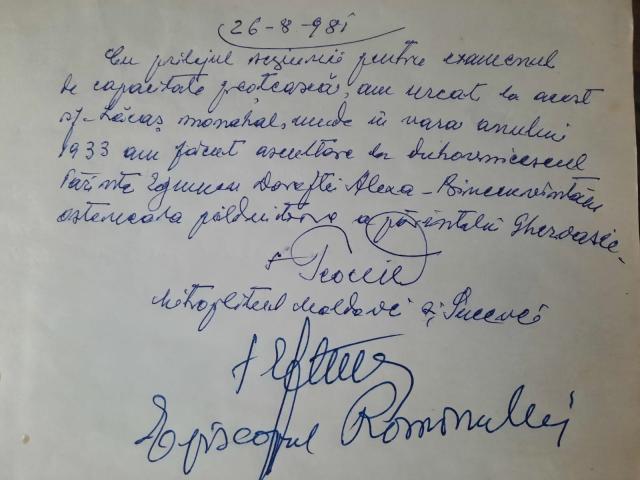 26-8-981
Cu prilejul sesiunii pentru examenul
de capacitate preoțească, am urcat la acest
sf. Lăcaș monahal, unde în vara anului
1933 am făcut ascultare la duhovnicescul
Părinte Egumen Doroftei Alexa - Binecuvîntăm
osteneala pilduitoare a părintelui Ghervasie.
† Teoctist
Mitropolitul Moldovei și Sucevei
† Eftimie
Episcopul Romanului